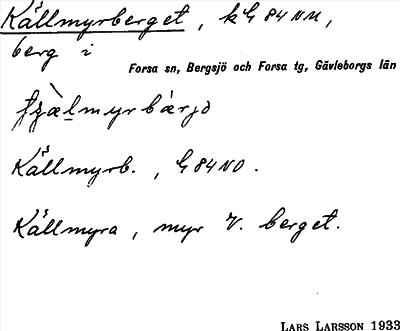 Källmyrberget, k G 84 NM,
berg i
Forsa sn, Bergsjö och Forsa tg, Gävleborgs län
Källmyrb., G 84 NO.
Källmyra, myr V. berget.
LARS LARSSON 1933